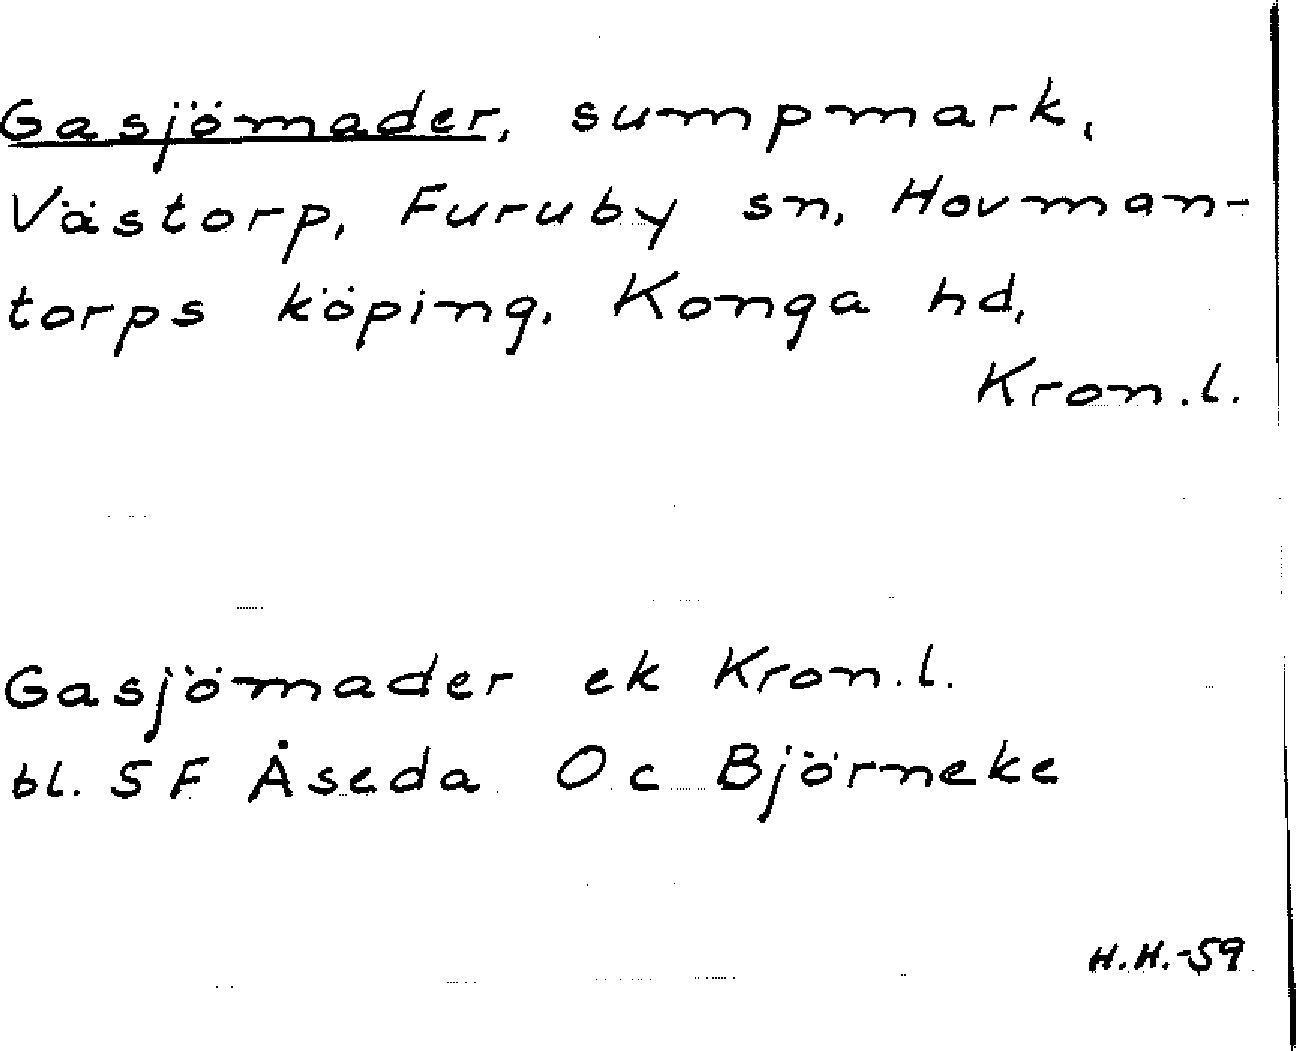 Gasjömader, sumpmark,
Västorp, Furuby sn, Hovman-
torps köping, Konga hd,
Kron.l.
Gasjömader ek Kron.l.
bl. SF Åseda Oc Björneke
H.H.-59